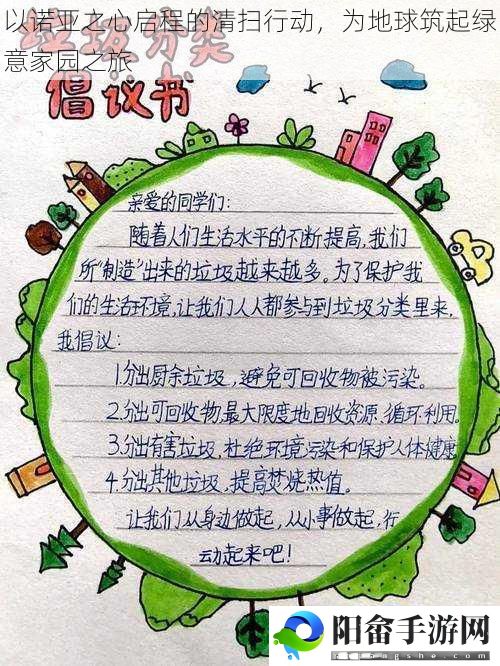 以诺亚之心启程的清扫行动，为地球筑起绿
意家园之旅
垃圾分类
倡议书
亲爱的同学们：
随着人们生活水平的不断提高，我们
所“制造”出来的垃圾越来越多。为了保护我
们的生活环境，让我们人人都参与到垃圾分类里来，
我倡议：
1.分出厨余垃圾，避免可回收物被污染。
2.分出可回收物，最大限度地回收资源、循环利用。
3.分出有害垃圾，杜绝环境污染和保护人体健康
4.分出其他垃圾，提高焚烧热值。
让我们从身边做起，从小事做起，行
动起来吧！
阳畲手游网